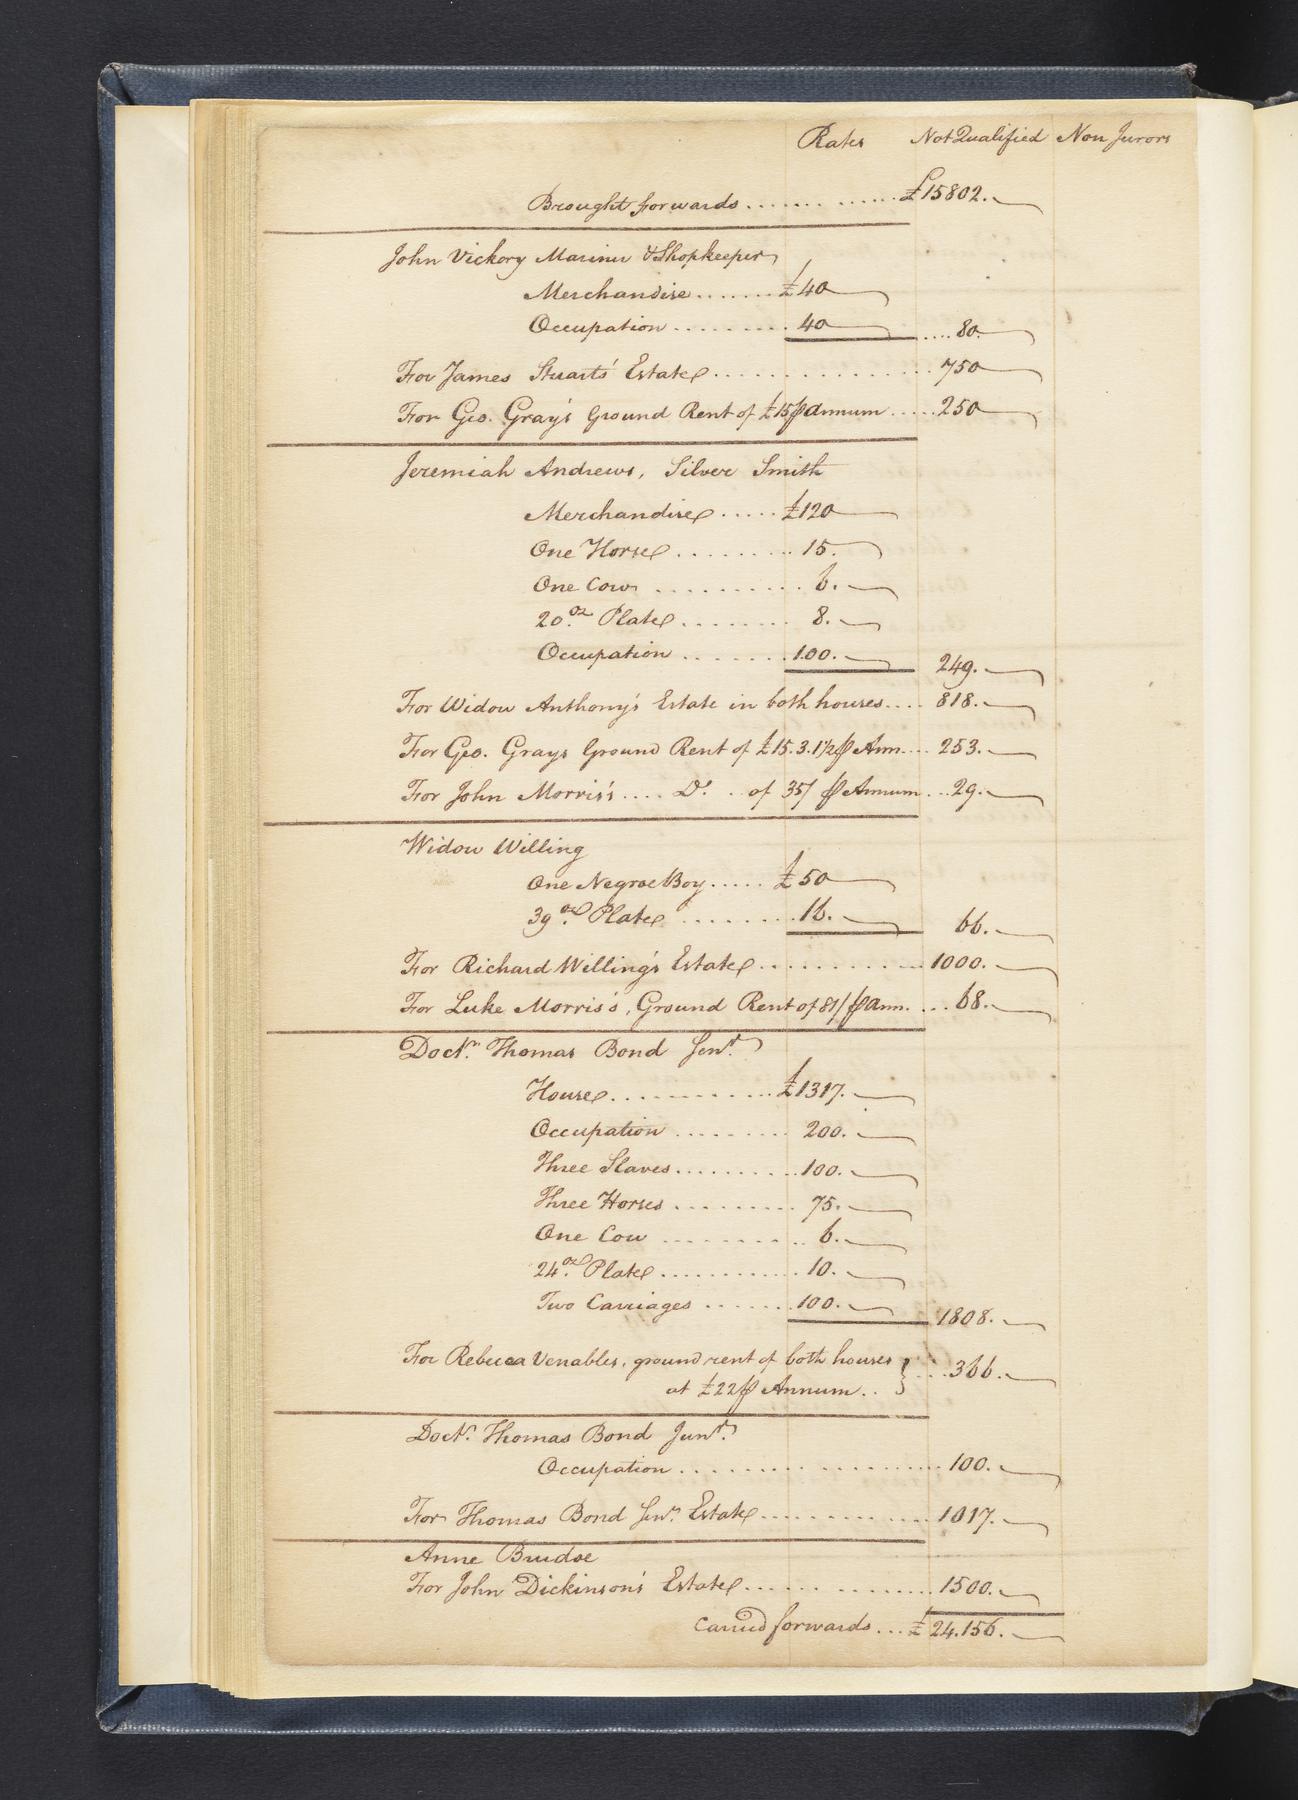 Rates Not Qualified Non Jurors
Brought forwards ....... ...... £15802.
John Vickory Mariner & Shopkeeper
Merchandise ....... £40
Occupation ......... 40 .... 80.
For James Stuarts' Estate ............... 750
For Geo. Gray's Ground Rent of £15 ⅌ Annum ..... 250
Jeremiah Andrews, Silver Smith
Merchandise ..... £120
One Horse ......... 15.
One Cow ........... 6.
20.oz Plate ........ 8.
Occupation ....... 100. 249.
For Widow Anthony's Estate in both houses .... 818.
For Geo. Grays Ground Rent of £15.3.1½ ⅌ Ann .... 253.
For John Morris's .... Do. . of 35/ ⅌ Annum ... 29.
Widow Willing
One Negroe Boy ..... £50
39.oz Plate ......... 16. 66.
For Richard Willing's Estate ............ 1000.
For Luke Morris's, Ground Rent of 81/ ⅌ Ann. ... 68.
Doctr. Thomas Bond Senr.
House ............ £1317.
Occupation ......... 200.
Three Slaves .......... 100.
Three Horses ......... 75.
One Cow .......... 6.
24.oz Plate ............ 10.
Two Carriages ....... 100. 1808.
For Rebecca Venables, ground rent of both houses
at £22 ⅌ Annum .. } ... 366.
Doctr. Thomas Bond Junr.
Occupation .................. 100.
For Thomas Bond Senr. Estate ............. 1017.
Anne Brudoe
For John Dickinson's Estate .............. 1500.
Carried forwards ... £24.156.